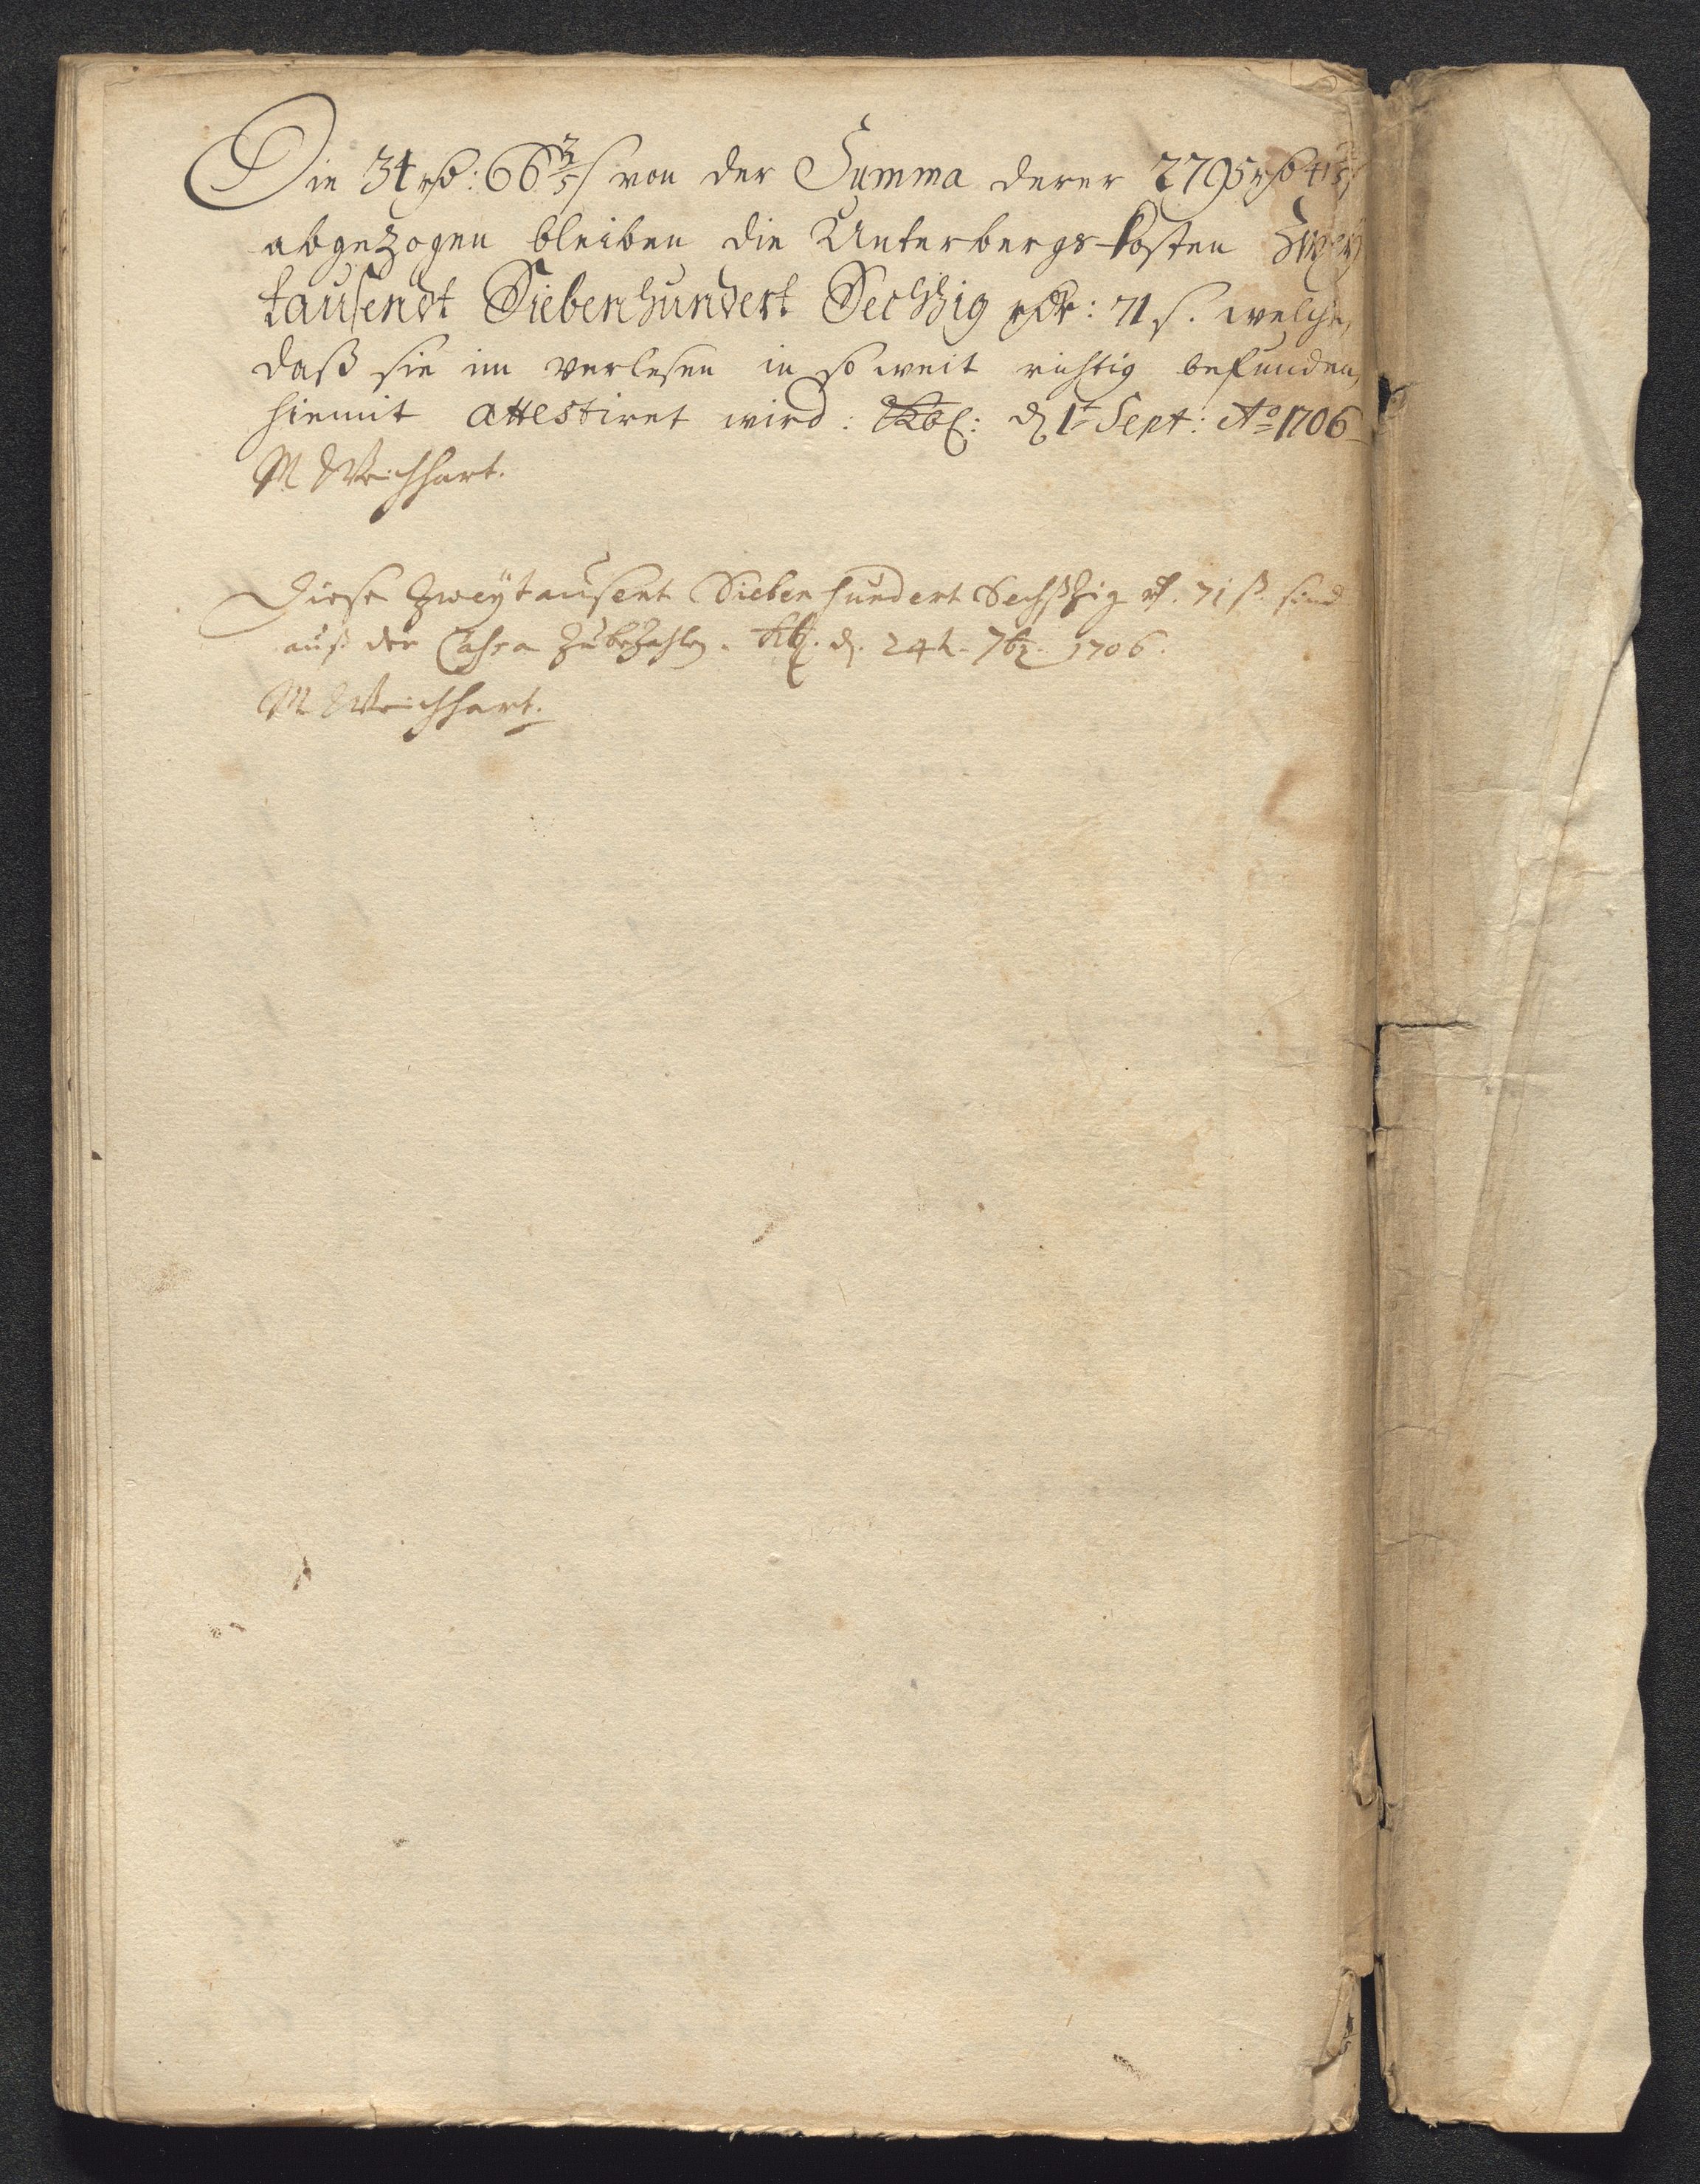 Die 34 rdr: 66 3/5 s von der Summa derer 2795 rdr 41 3/5 s
abgezogen bleiben die Unterbergs-kosten Zwey
tausendt Siebenhundert Sechßig rdr: 71 s. welche,
daß sie im verlesen in so weit richtig befunden,
hiemit attestiret wird: Kbg: d 1t Sept: Ao 1706
M Weichhart.
Diese Zweytausent Siebenhundert Sechßzig rd. 71 ß. sind
auß der Cassa zubezahlen. Kbg. d. 24t. 7br. 1706.
M Weichhart.